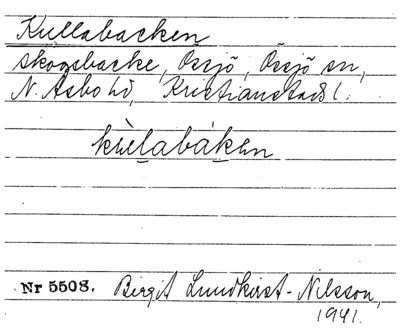 Kullabacken
skogsbacke, Össjö, Össjö sn,
N. Åsbo hd, Kristianstads l.
kùlabákən
Nr 5508. Birgit Lundkvist-Nilsson,
1941.